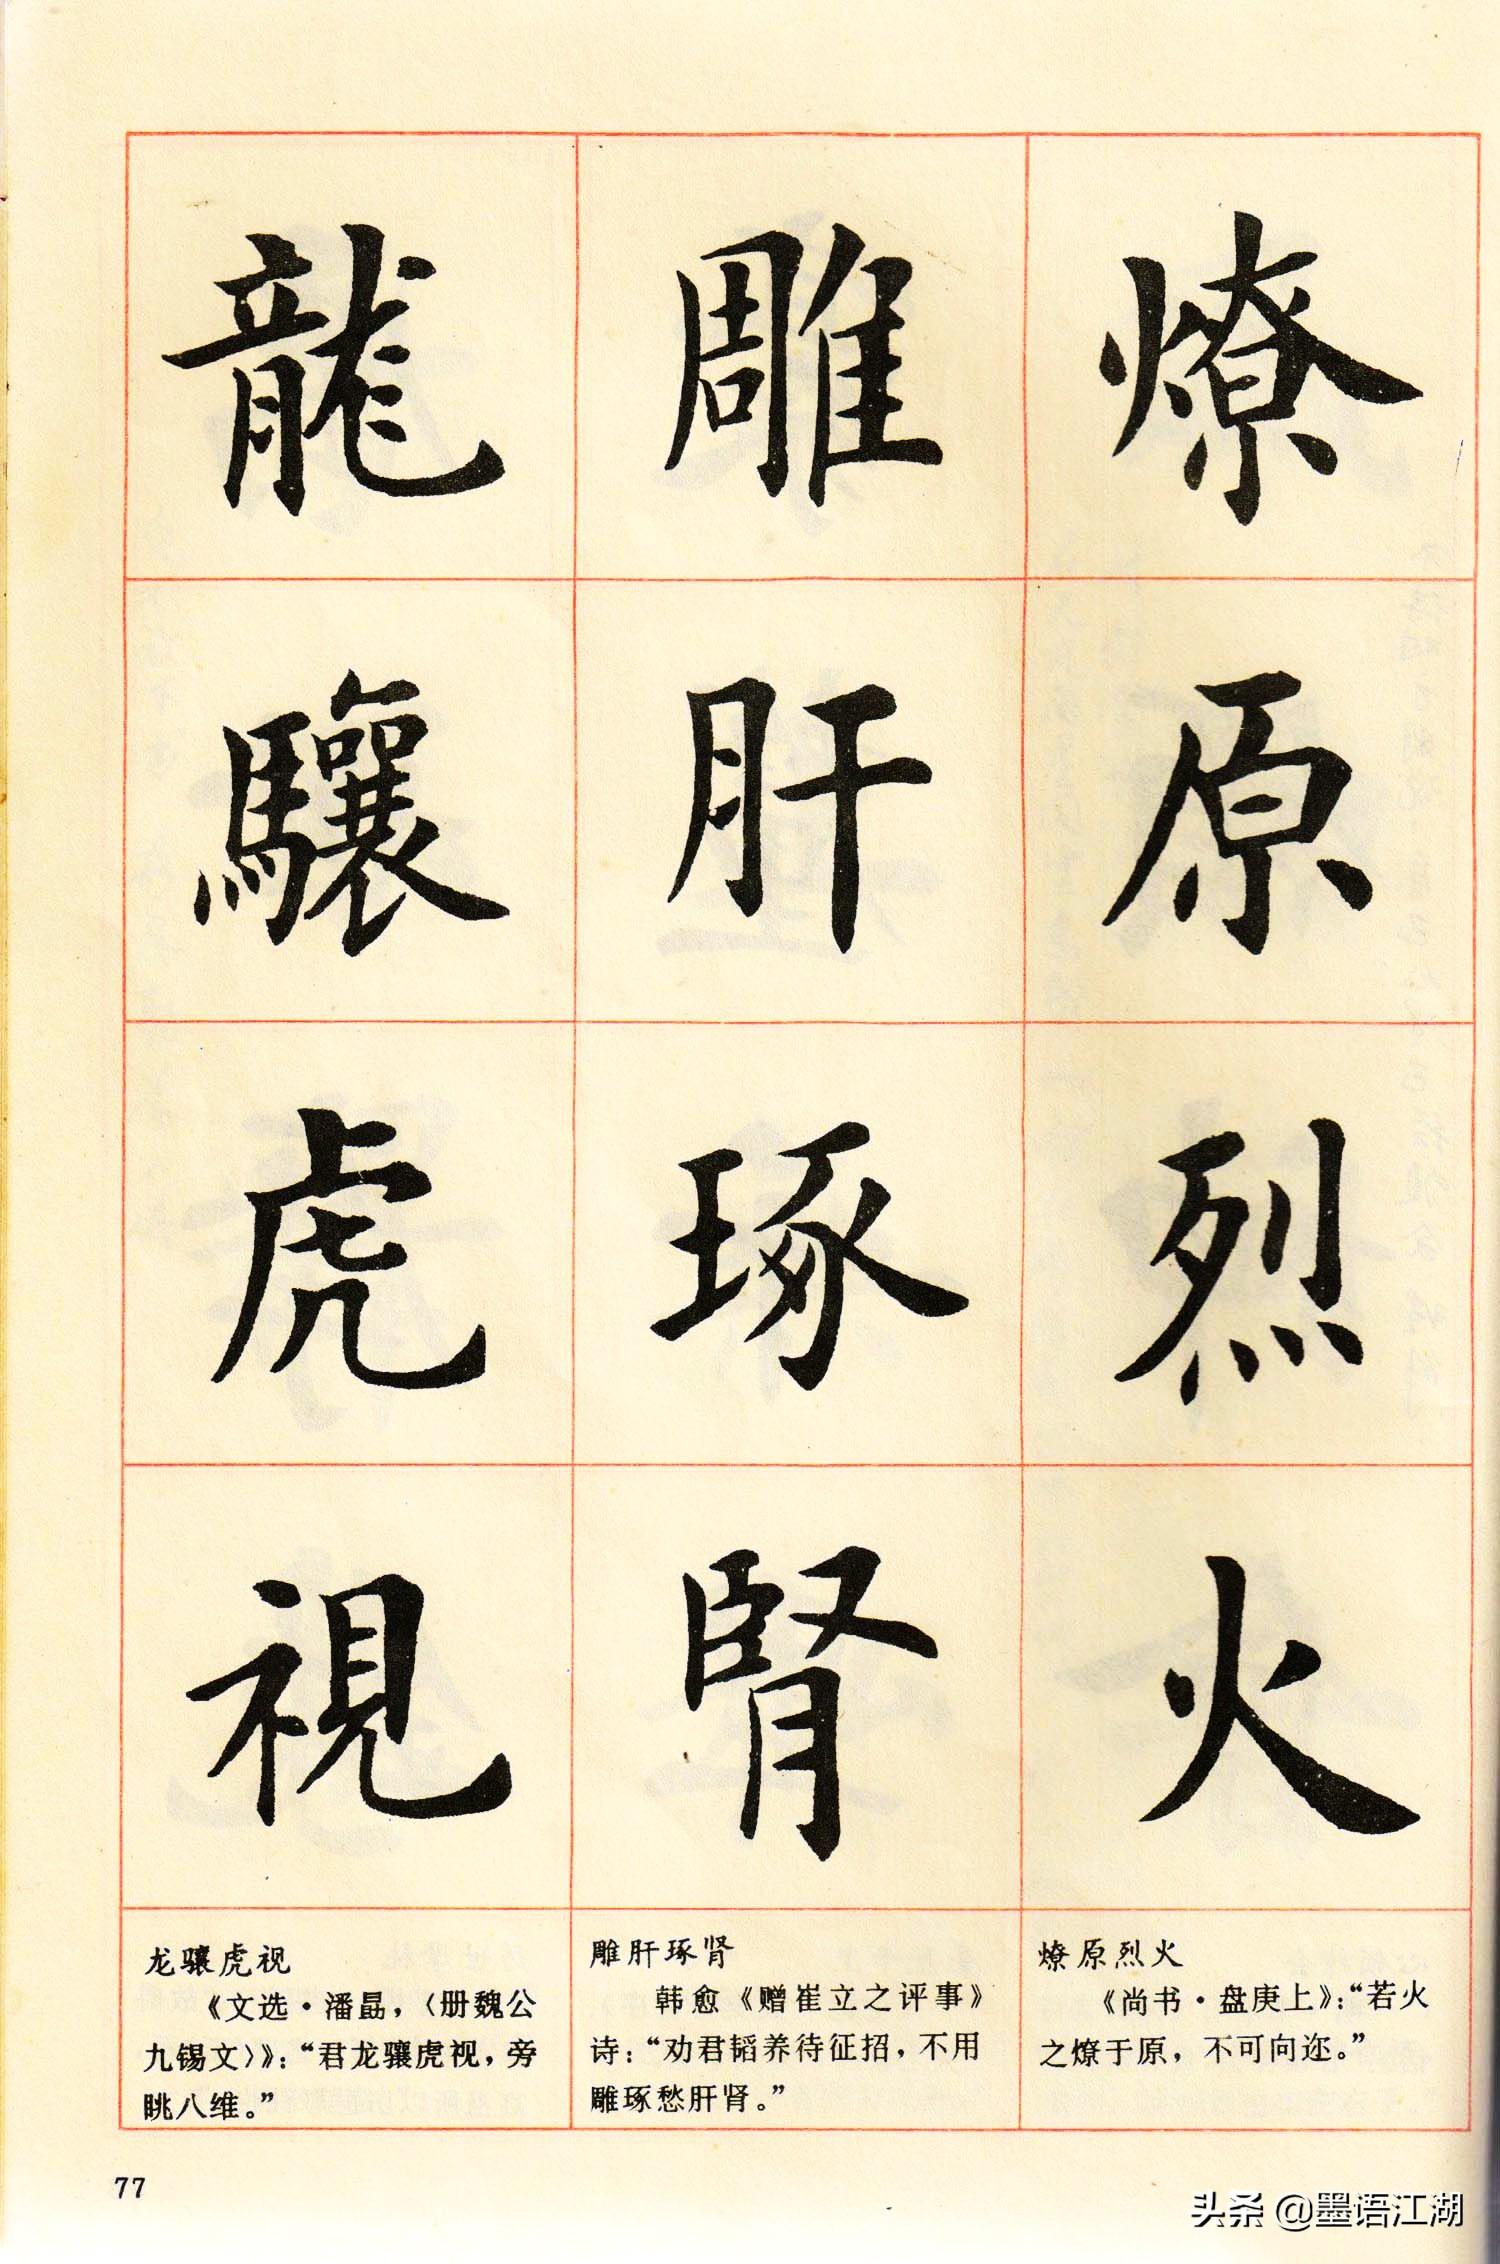 燎原烈火
雕肝琢腎
龍驤虎視
燎原烈火
《尚书·盘庚上》:“若火
之燎于原，不可向迩。”
雕肝琢肾
韩愈《赠崔立之评事》
诗:“劝君韬养待征招，不用
雕琢愁肝肾。”
龙骧虎视
《文选·潘勗，〈册魏公
九锡文〉》:“君龙骧虎视，旁
眺八维。”
77
头条@墨语江湖